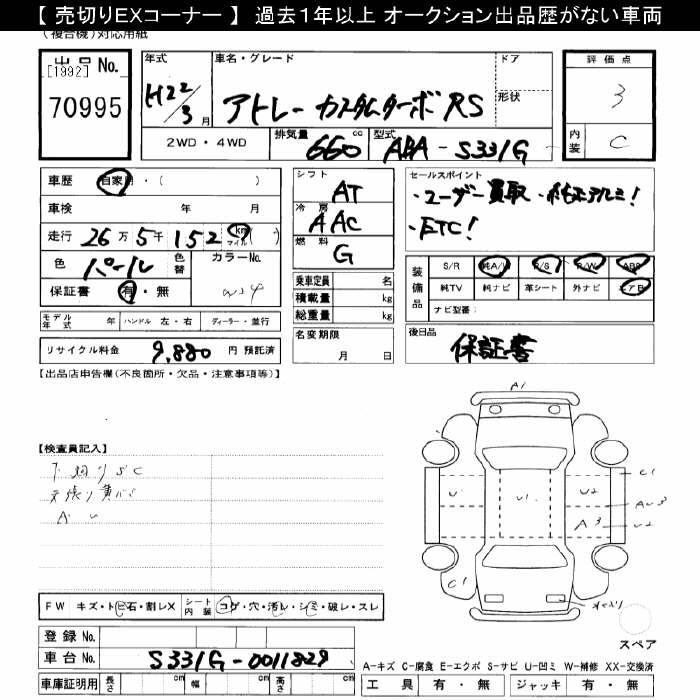 【 売切りEXコーナー 】 過去１年以上 オークション出品歴がない車両
(複合機)対応用紙
出品 No. [1992]
70995
年式 H22/3月
車名・グレード アトレー カスタムターボRS
ドア
形状
評価点 3
内装 C
2WD・4WD
排気量 660 cc
型式 ABA-S331G
車歴 自家・( )
車検 年 月
走行 26万5千152 km マイル ( )
色 パール 色替 カラーNo. W24
保証書 有・無
モデル年式 年 ハンドル 左・右 ディーラー・並行
リサイクル料金 9,880 円 預託済
シフト AT
冷房 AAC
燃料 G
乗車定員 名
積載量 kg
総重量 kg
名変期限
月 日
セールスポイント
・ユーザー買取 ・純正アルミ!
・ETC!
装備品 S/R 純A/W P/S P/W ABS
純TV 純ナビ 革シート 外ナビ エアB
ナビ型番:
後日品
保証書
【出品店申告欄(不良箇所・欠品・注意事項等)】
【検査員記入】
FW キズ・トビ石・割レX シート内装 コゲ・穴・汚レ・シミ・破レ・スレ
登録 No.
車台 No. S331G-0011829
車庫証明用 長さ cm 幅 cm 高さ cm
A1
C1
U U1 U2
AU3
A3 U2
C1
スペア
A-キズ C-腐食 E-エクボ S-サビ U-凹ミ W-補修 XX-交換済
工具 有・無 ジャッキ 有・無